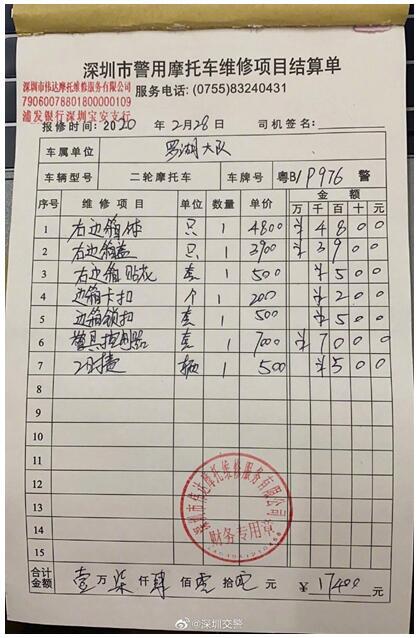 深圳市警用摩托车维修项目结算单
深圳市伟达摩托维修服务有限公司
79060078801800000109
浦发银行深圳宝安支行
服务电话: (0755)83240431
报修时间: 2020 年 2月 28日 司机签名:
车属单位 罗湖大队
车辆型号 二轮摩托车 车牌号 粤B/P976 警
序号 维修项目 单位 数量 单价 金额
万 千 百 十 元
1 右边箱体 只 1 4800 ¥ 4 8 0 0
2 右边箱盖 只 1 3900 ¥ 3 9 0 0
3 右边箱贴花 套 1 500 ¥ 5 0 0
4 边箱卡扣 个 1 200 ¥ 2 0 0
5 边箱锁扣 套 1 500 ¥ 5 0 0
6 警具控制器 套 1 7000 ¥ 7 0 0 0
7 工时费 辆 1 500 ¥ 5 0 0
8
9
10
11
12
13
14
15
深圳市伟达摩托维修服务有限公司
财务专用章
合计金额 壹 万 柒 仟 肆 佰 零 拾 元 ¥ 17400
@深圳交警